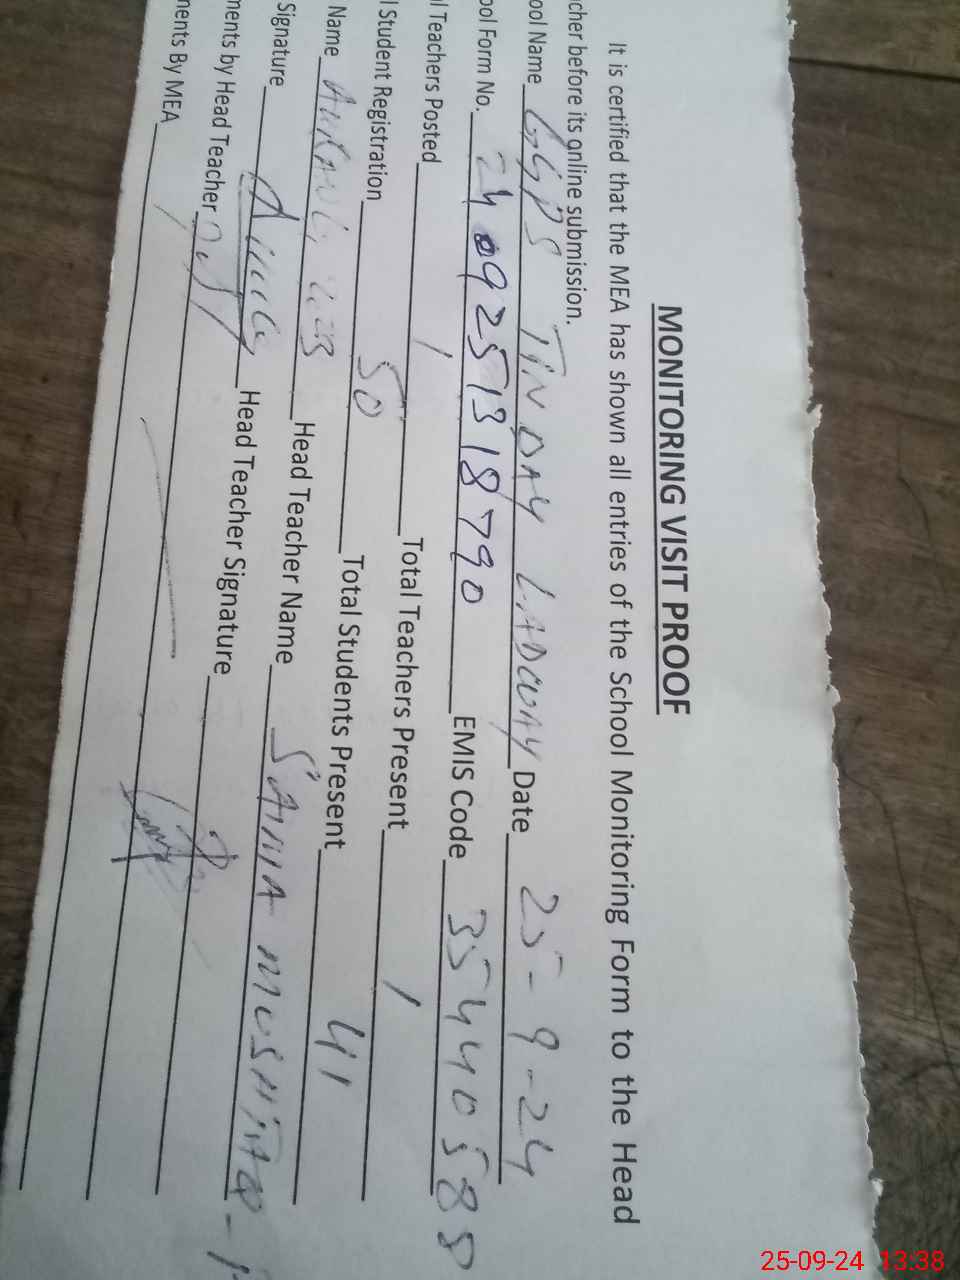 MONITORING VISIT PROOF
It is certified that the MEA has shown all entries of the School Monitoring Form to the Head
cher before its online submission.
ool Name GGPS TINDAY LADWAY Date 25-9-24
ool Form No. 2409251318790 EMIS Code 35440588
l Teachers Posted 1 Total Teachers Present 1
l Student Registration 50 Total Students Present 41
Name Head Teacher Name SAIMA MUSHTAQ
Signature Head Teacher Signature
ments by Head Teacher
ments By MEA
25-09-24 13:38